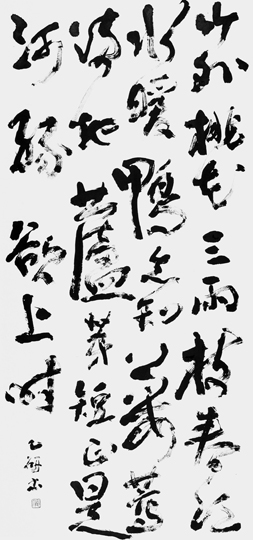 竹外桃花三兩枝春江
水暖鴨先知蔞蒿
滿地蘆芽短正是
河豚欲上時